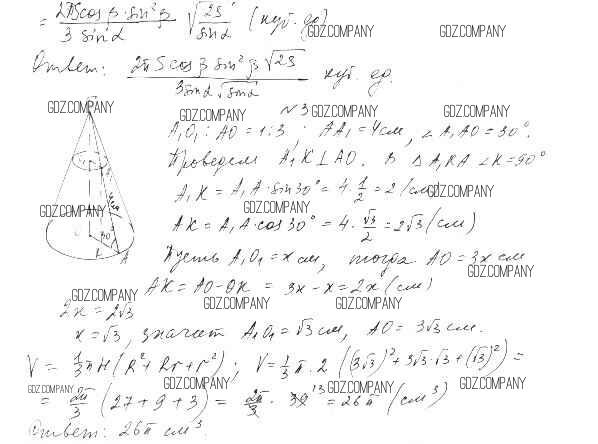 = 2πS cos β · sin² β / 3 sin α √(2S / sin α) (куб. ед)
GDZ.COMPANY GDZ.COMPANY
Ответ: 2πS cos β sin² β √2S / 3 sin α √sin α куб. ед.
GDZ.COMPANY GDZ.COMPANY GDZ.COMPANY GDZ.COMPANY
№3
A₁O₁ : AO = 1:3; AA₁ = 4см, ∠A₁AO = 30°.
Проведем A₁K ⊥ AO. В ΔA₁KA ∠K = 90°
A₁K = A₁A · sin 30° = 4 · 1/2 = 2 (см)
GDZ.COMPANY GDZ.COMPANY GDZ.COMPANY
AK = A₁A · cos 30° = 4 · √3/2 = 2√3 (см)
4см 30° K A
Пусть A₁O₁ = x см, тогда AO = 3x см
GDZ.COMPANY
AK = AO - OK = 3x - x = 2x (см)
GDZ.COMPANY GDZ.COMPANY GDZ.COMPANY
2x = 2√3
x = √3, значит A₁O₁ = √3 см, AO = 3√3 см.
V = 1/3 πH (R² + Rr + r²); V = 1/3 π · 2 ((3√3)² + 3√3·√3 + (√3)²) =
GDZ.COMPANY GDZ.COMPANY GDZ.COMPANY
= 2π/3 (27 + 9 + 3) = 2π/3 · 39 13 = 26π (см³)
Ответ: 26π см³.